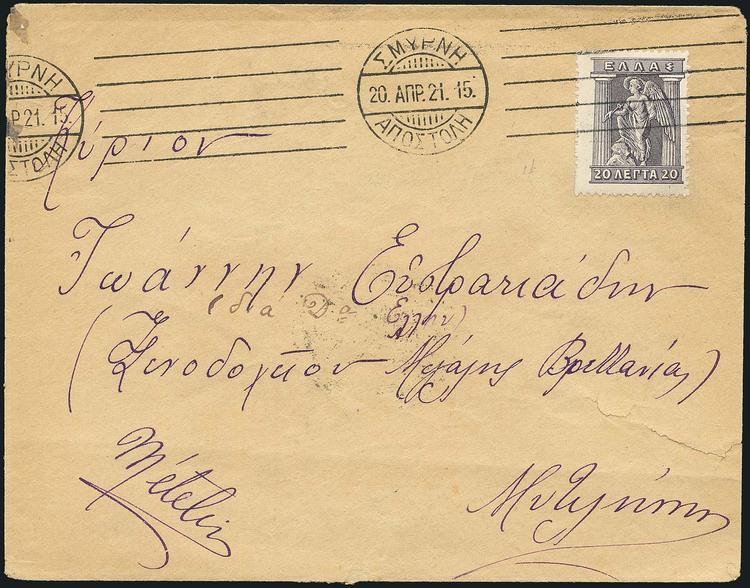 ΣΜΥΡΝΗ
20. ΑΠΡ. 21. 15.
ΑΠΟΣΤΟΛΗ
ΥΡΝΗ
Ρ. 21. 15.
ΣΤΟΛΗ
ΕΛΛΑΣ
20 ΛΕΠΤΑ 20
Κύριον
Ἰωάννην Εὐστρατιάδην
(διὰ Δα Ἑλλην)
(Ξενοδοχεῖον Μεγάλης Βρεττανίας)
Métélin
Μυτιλήνην